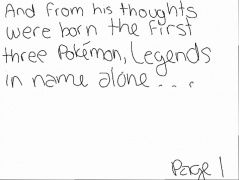 And from his thoughts
were born the first
three Pokémon, Legends
in name alone . . .
Page 1